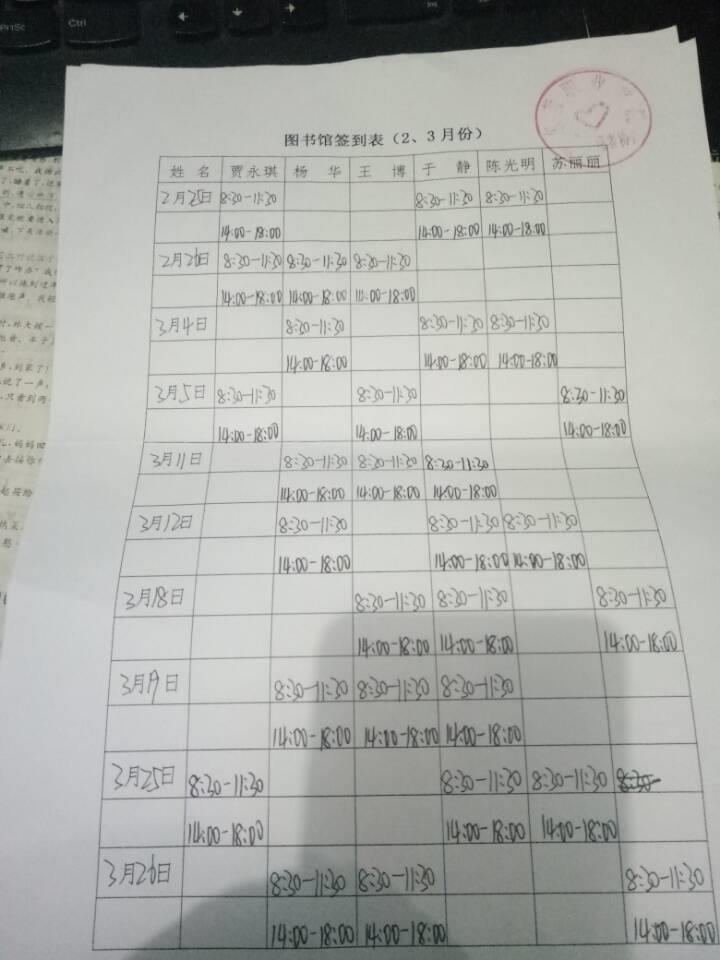 PrtSc
Ctrl
图书馆签到表（2、3月份）
姓 名 贾永琪 杨 华 王 博 于 静 陈光明 苏丽丽
2月25日 8:30-11:30 8:30-11:30 8:30-11:30
14:00-18:00 14:00-18:00 14:00-18:00
2月26日 8:30-11:30 8:30-11:30 8:30-11:30
14:00-18:00 14:00-18:00 14:00-18:00
3月4日 8:30-11:30 8:30-11:30 8:30-11:30
14:00-18:00 14:00-18:00 14:00-18:00
3月5日 8:30-11:30 8:30-11:30 8:30-11:30
14:00-18:00 14:00-18:00 14:00-18:00
3月11日 8:30-11:30 8:30-11:30 8:30-11:30
14:00-18:00 14:00-18:00 14:00-18:00
3月12日 8:30-11:30 8:30-11:30 8:30-11:30
14:00-18:00 14:00-18:00 14:00-18:00
3月18日 8:30-11:30 8:30-11:30 8:30-11:30
14:00-18:00 14:00-18:00 14:00-18:00
3月19日 8:30-11:30 8:30-11:30 8:30-11:30
14:00-18:00 14:00-18:00 14:00-18:00
3月25日 8:30-11:30 8:30-11:30 8:30-11:30 8:30
14:00-18:00 14:00-18:00 14:00-18:00
3月26日 8:30-11:30 8:30-11:30 8:30-11:30
14:00-18:00 14:00-18:00 14:00-18:00